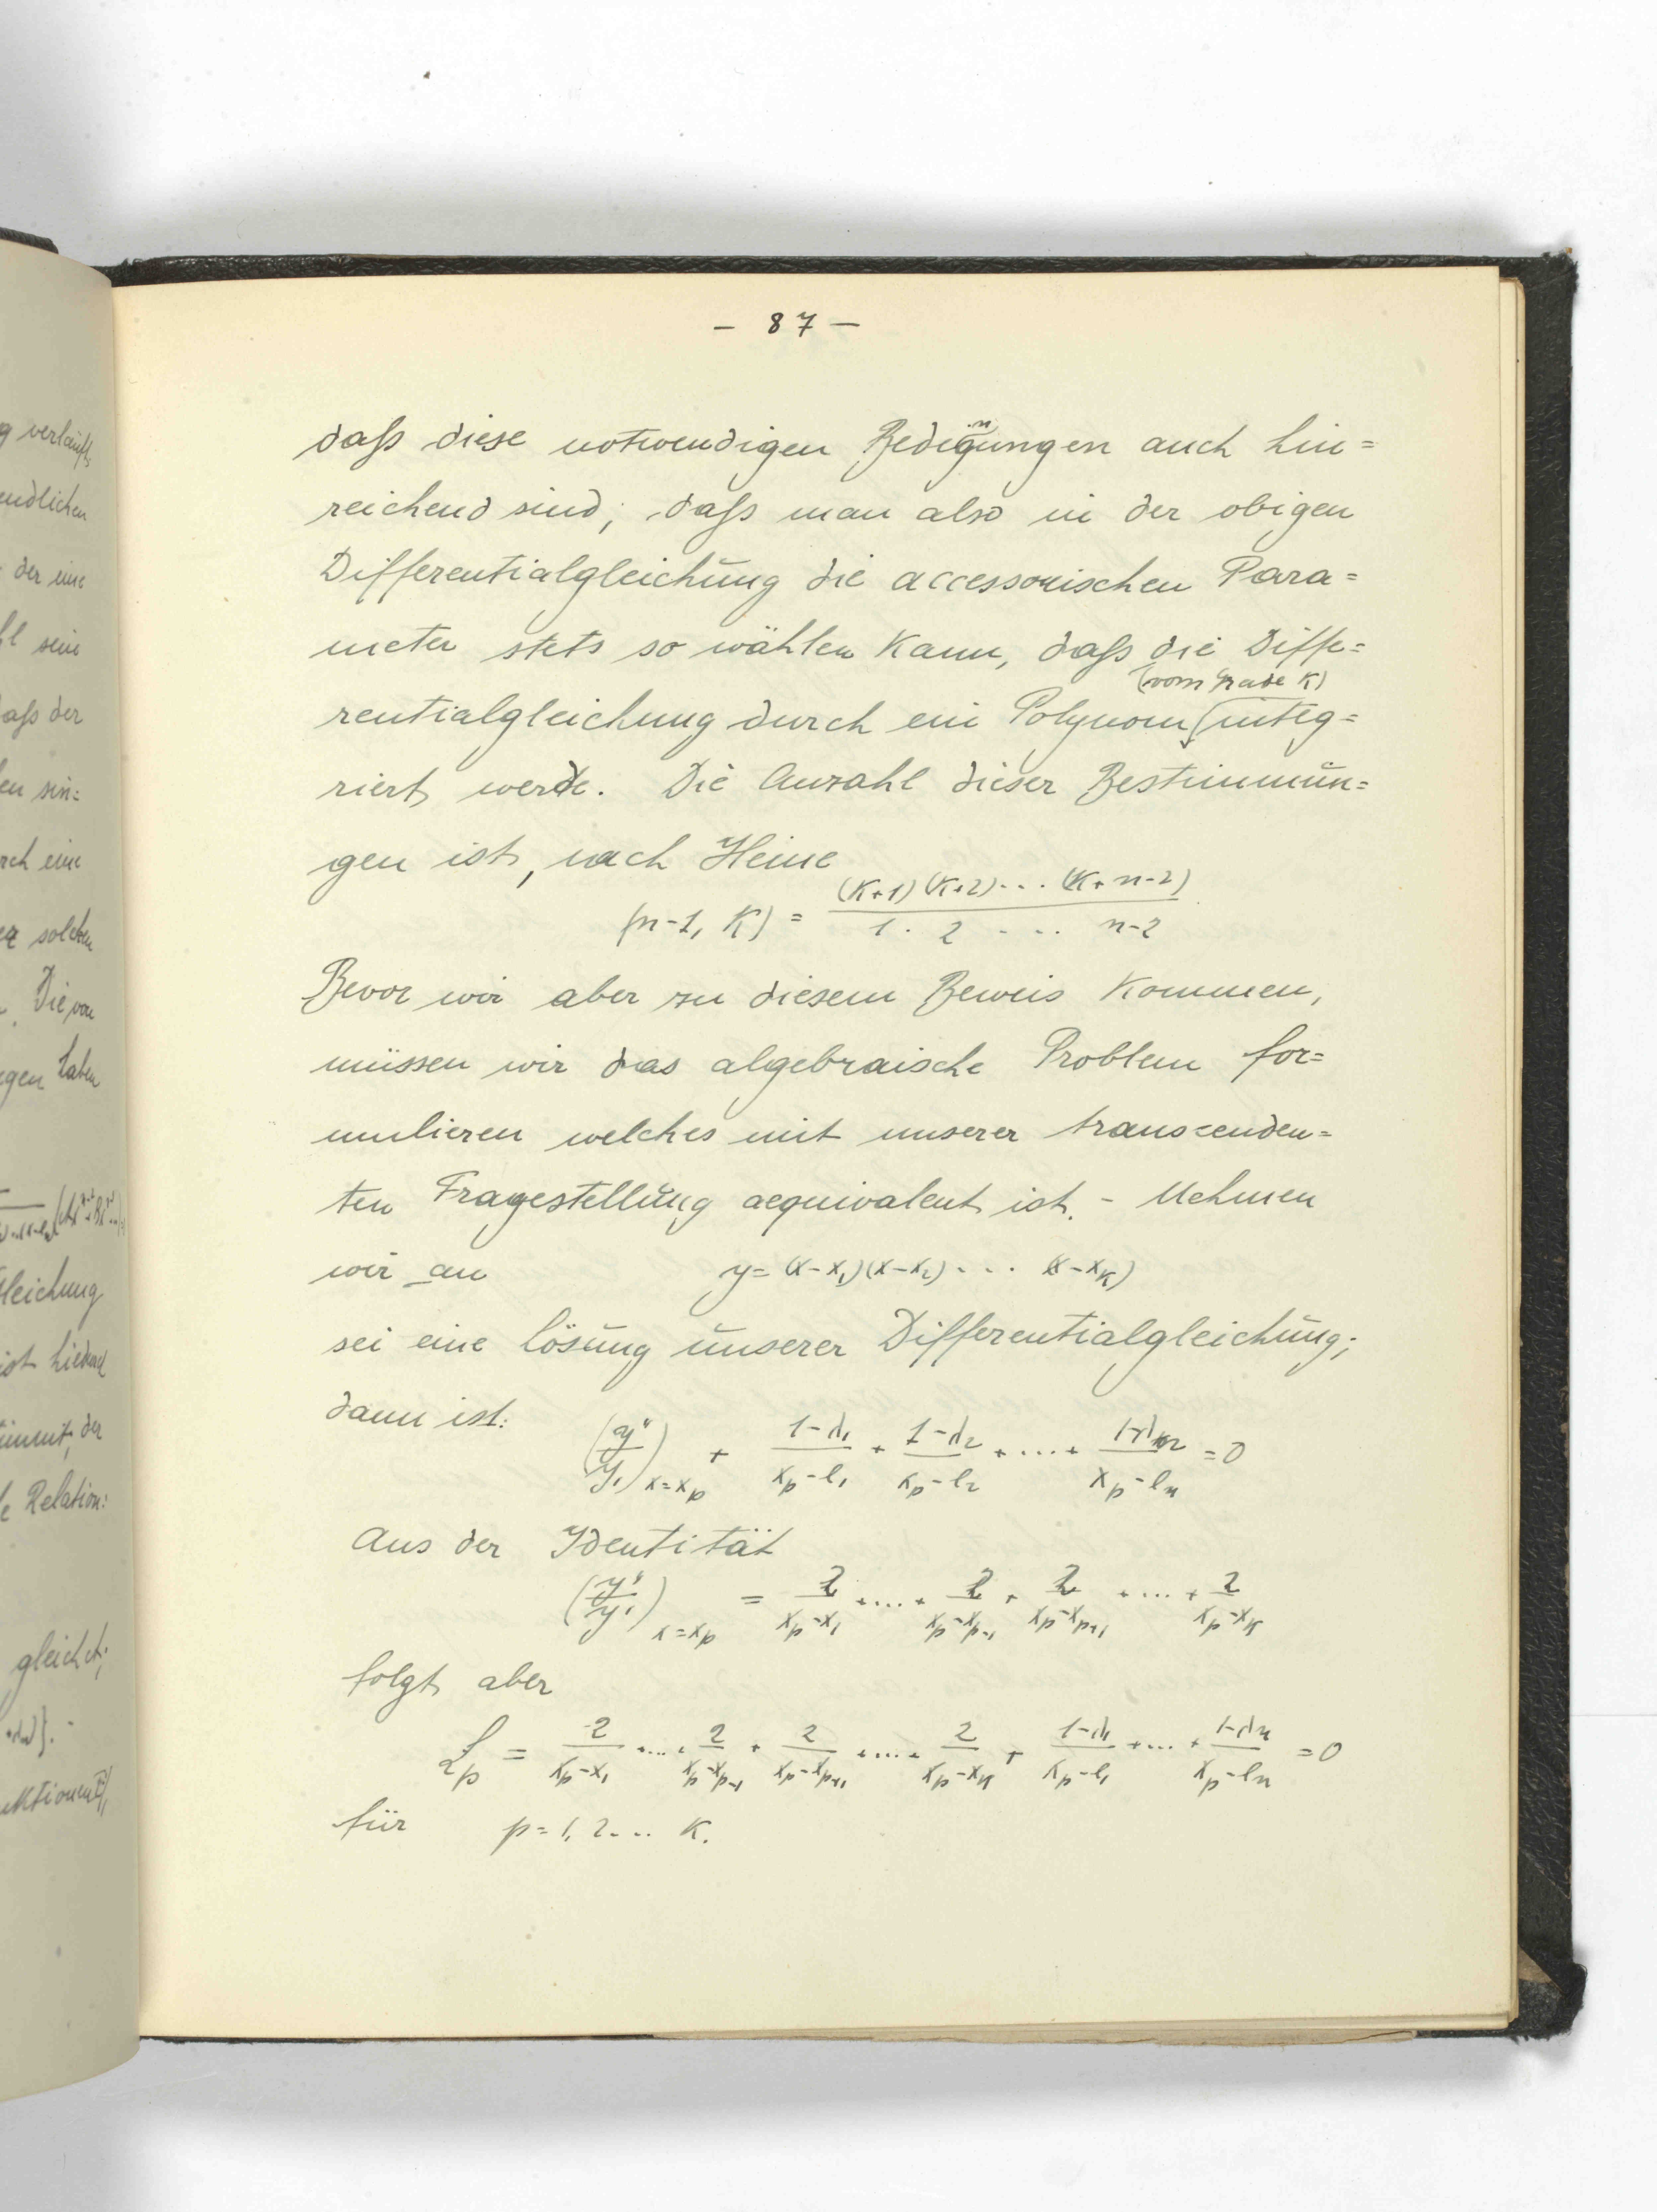 g verläuft
endlichen
der eine
hl sein
daß der
en sin=
rch eine
er solchen
Die von
egen haben
leichung
ist hie
immt, der
le Relation:
gleicht;
nktionen
- 87 -
daß diese notwendigen Bedigungen auch hin=
n
reichend sind; daß man also in der obigen
Differentialgleichung die accessorischen Para=
meter stets so wählen kann, daß die Diffe=
(vom Grade K)
rentialgleichung durch ein Polynom integ=
riert werde. Die Anzahl dieser Bestimmun=
gen ist, nach Heine
(n-1, K) = (K+1)(K+2)... (K+n-2) / 1 . 2 ... n-2
Bevor wir aber zu diesem Beweis kommen,
müssen wir das algebraische Problem for=
mulieren welches mit unserer transcenden=
ten Fragestellung aequivalent ist. - Nehmen
wir an y = (x-x₁)(x-x₂)... (x-x_K)
sei eine Lösung unserer Differentialgleichung;
dann ist: (y''/y')_{x=x_p} + (1-λ₁)/(x_p-l₁) + (1-λ₂)/(x_p-l₂) + .... + (1-λ_n)/(x_p-l_n) = 0
Aus der Identität
(y''/y')_{x=x_p} = 2/(x_p-x₁) + .... + 2/(x_p-x_{p-1}) + 2/(x_p-x_{p+1}) + .... + 2/(x_p-x_K)
folgt aber
L_p = 2/(x_p-x₁) + .... + 2/(x_p-x_{p-1}) + 2/(x_p-x_{p+1}) + .... + 2/(x_p-x_K) + (1-λ₁)/(x_p-l₁) + ... + (1-λ_n)/(x_p-l_n) = 0
für p = 1, 2... K.